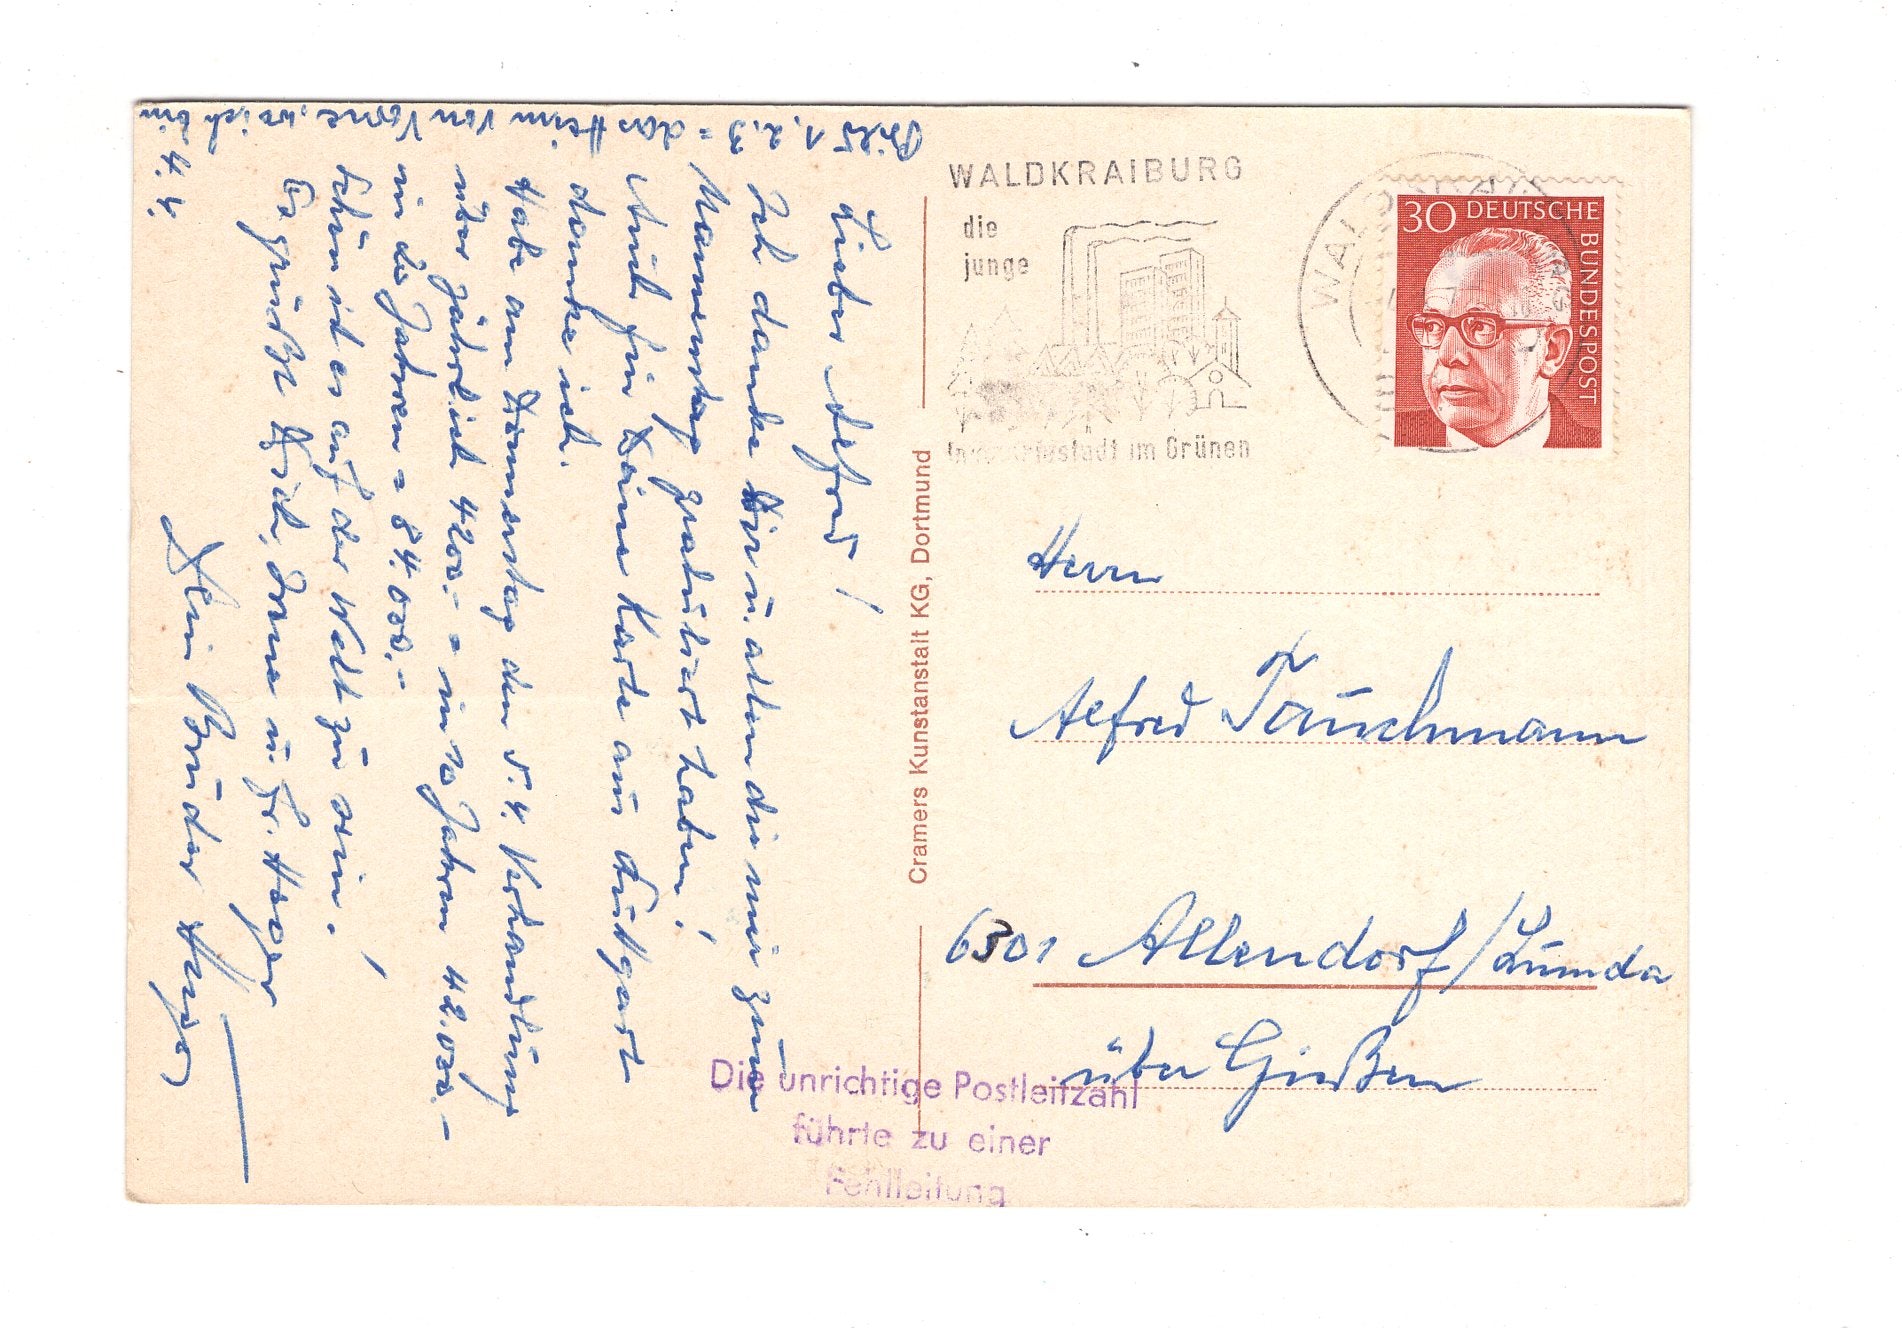 Bild 1, 2, 3 = das Heim von Vorne, wo ich bin
4.4.
Lieber Alfred!
Ich danke Dir u. allen die mir zum
Namenstag gratuliert haben!
Auch für Deine Karte aus Stuttgart
danke ich.
Habe am Donnerstag den 5.4. Verhandlung
über jährlich 4200.- = in 10 Jahren 42.000.-
in 20 Jahren = 84.000.-
Schön ist es auf der Welt zu sein!
Es grüßt Dich, Irma u. Fr. Hager
Dein Bruder Hugo
Cramers Kunstanstalt KG, Dortmund
WALDKRAIBURG
die
junge
Industriestadt im Grünen
30 DEUTSCHE
BUNDESPOST
Herrn
Alfred Tauchmann
6301 Allendorf/Lumda
über Gießen
Die unrichtige Postleitzahl
führte zu einer
Fehlleitung